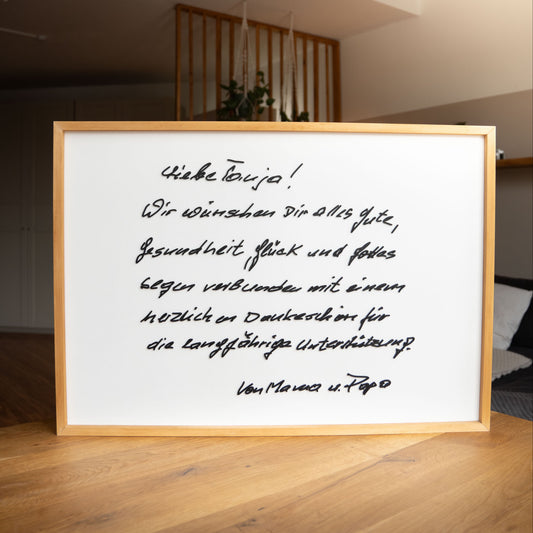 Liebe Tanja!
Wir wünschen Dir alles gute,
Gesundheit, Glück und Gottes
Segen verbunden mit einem
herzlichen Dankeschön für
die langjährige Unterstützung.
Von Mama u. Papa